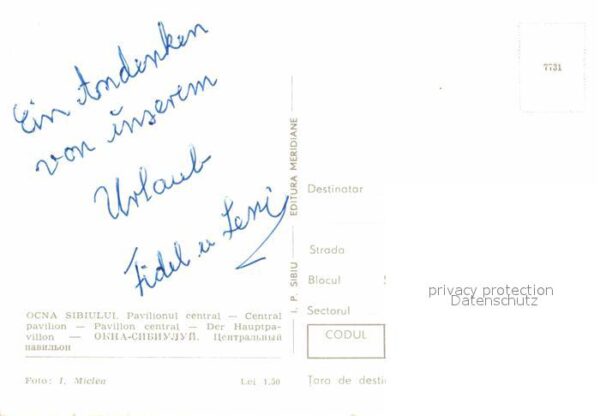 Ein Andenken
von unserem
Urlaub
Fidel u Leni
OCNA SIBIULUI. Pavilionul central — Central
pavilion — Pavillon central — Der Hauptpa-
villon — ОКНА-СИБИУЛУЙ. Центральный
павильон
Foto: I. Miclea
Lei 1,50
I. P. SIBIU
EDITURA MERIDIANE
7731
Destinatar
Strada
Blocul S
Sectorul
CODUL
Țara de desti
privacy protection
Datenschutz